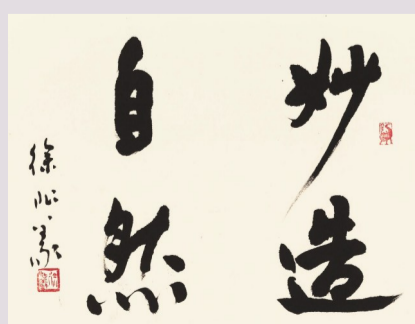 妙造
自然